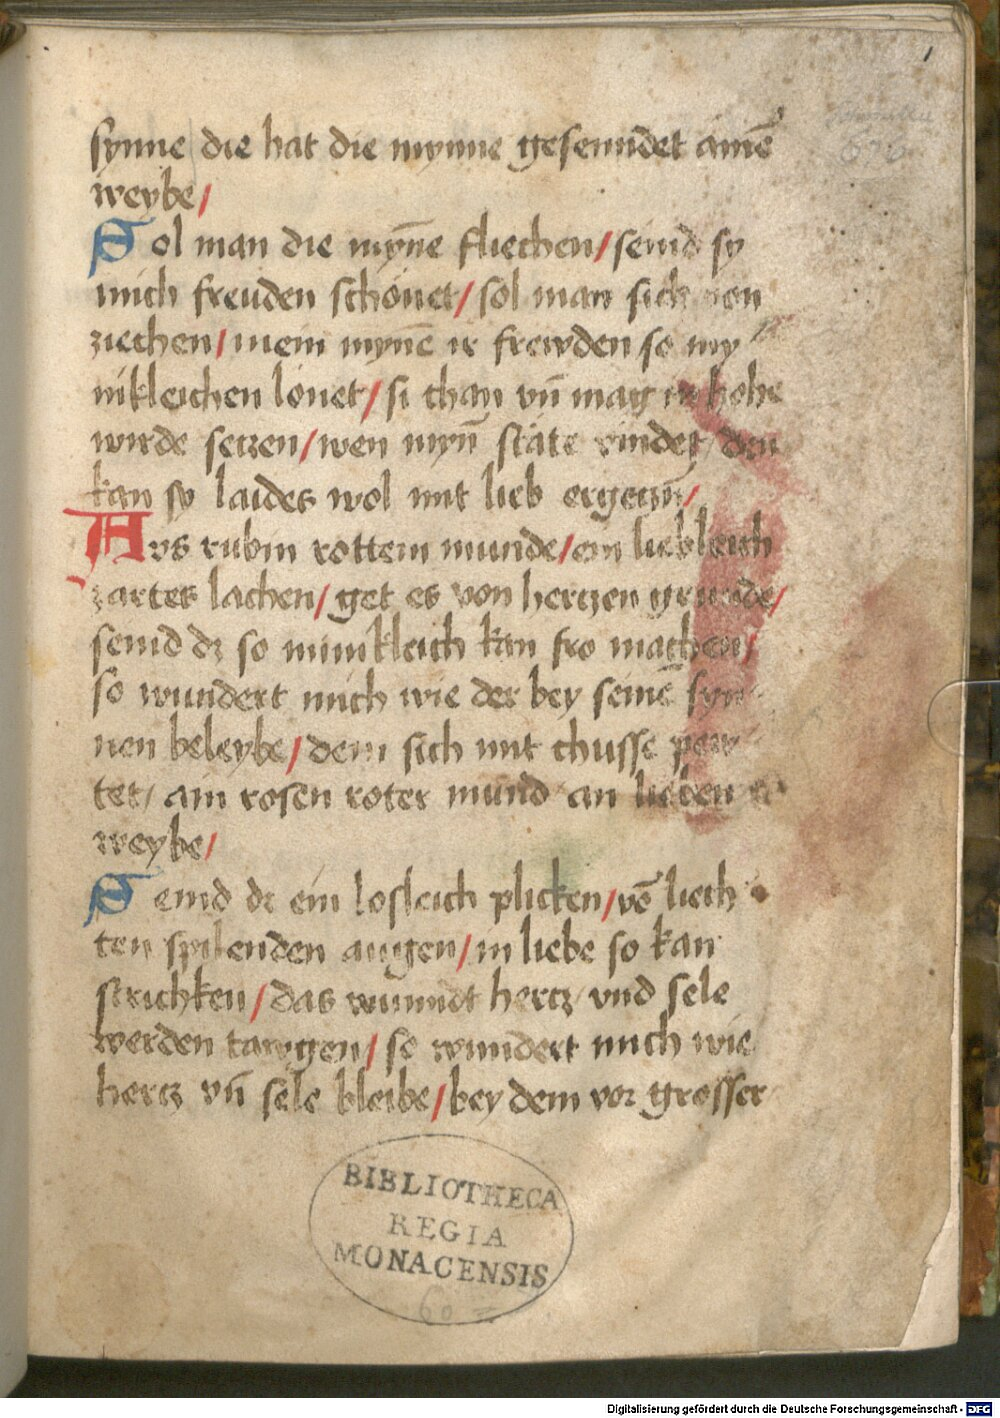 1
synne die hat die mynne gesenndet ainē
weybe/
Sol man die myñe fliechen/seind sy
mich freuden schönet/sol man sich von
ziechen/mein mynē ir frewden so my
nikleichen lonet/si chan vñ mag in hohe
wirde setzen/wen myñ stäte vindet den
kan sy laides wol mit lieb ergetzñ/
Avs rubin rottem munde/ein liebleich
zartes lachen/get es von hertzen grunde/
seind dz so minikleich kan fro machen/
so wundert mich wie der bey seinē syn
nen beleybe/dem sich mit chusse
tet/ ain rosen roter mund an lieben
weybe/
Seind dz ein losleich plicken/vō liech
ten spilenden augen/in liebe so kan
strichken/das wunndt hertz vnd sele
werden tawgen/so wundert mich wie
hertz vñ sele bleibe/bey dem vor grosser
BIBLIOTHECA
REGIA
MONACENSIS
Digitalisierung gefördert durch die Deutsche Forschungsgemeinschaft - DFG